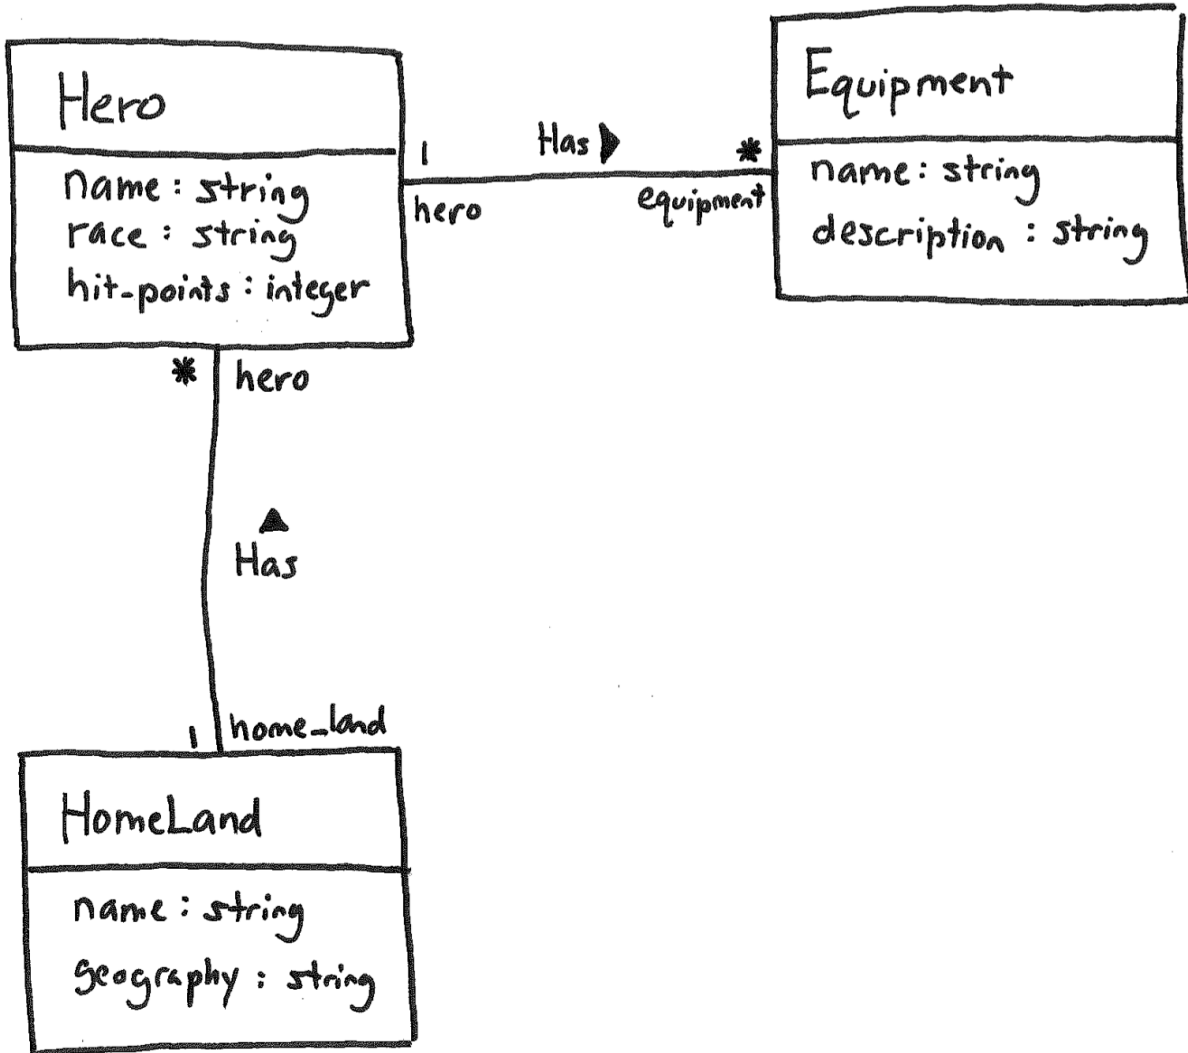 Hero
name: string
race: string
hit-points: integer
1
Has ▶
*
hero
equipment
Equipment
name: string
description: string
*
hero
▲
Has
1
home_land
HomeLand
name: string
geography: string